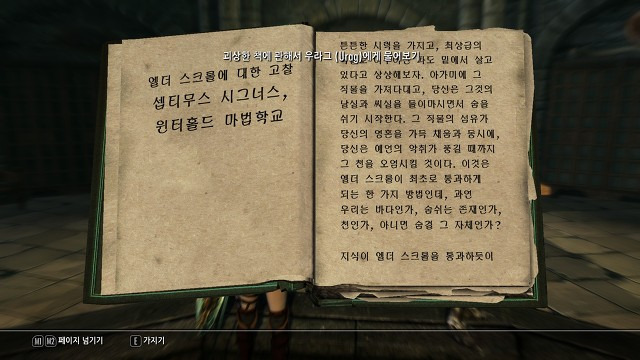 괴상한 책에 관해서 우라그 (Urag)에게 물어보기
엘더 스크롤에 대한 고찰
셉티무스 시그너스,
윈터홀드 마법학교
튼튼한 시력을 가지고, 최상급의
파도 밑에서 살고
있다고 상상해보자. 아가미에 그
직물을 가져다대고, 당신은 그것의
날실과 씨실을 들이마시면서 숨을
쉬기 시작한다. 그 직물의 섬유가
당신의 영혼을 가득 채움과 동시에,
당신은 예언의 악취가 풍길 때까지
그 천을 오염시킬 것이다. 이것은
엘더 스크롤이 최초로 통과하게
되는 한 가지 방법인데, 과연
우리는 바다인가, 숨쉬는 존재인가,
천인가, 아니면 숨결 그 자체인가?
지식이 엘더 스크롤을 통과하듯이
M1 M2 페이지 넘기기 E 가지기